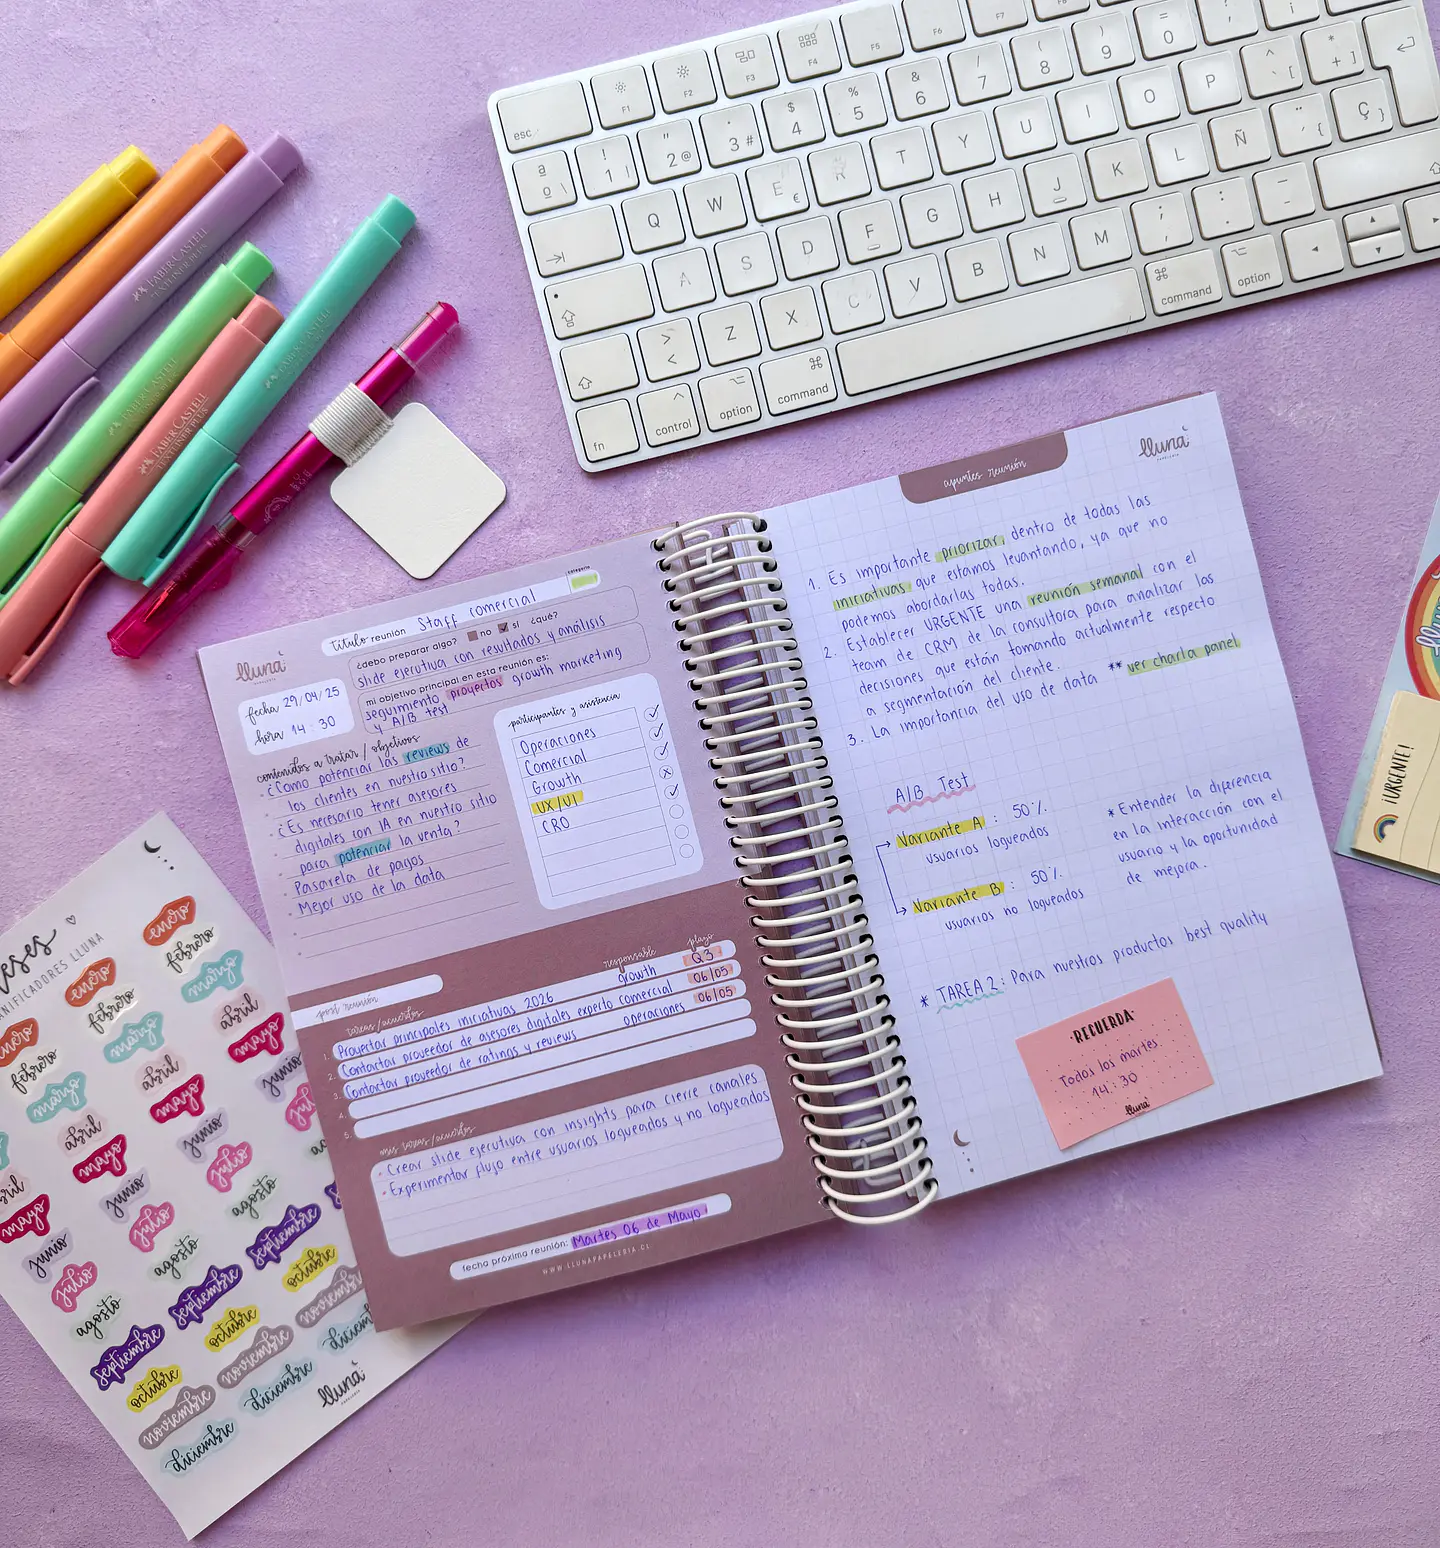 esc
F1
F2
F3
F4
F5
F6
F7
ª º \
! 1 |
" 2 @
· 3 #
$ 4
% 5
& 6
/ 7
( 8
) 9
= 0
Q W E € R T Y U I O P ^ ` [ * + ]
A S D F G H J K L Ñ ¨ ´ { Ç }
> < Z X C V B N M ; , : . _ -
fn control option command command option
FABER CASTELL
TEXTLINER PLUS
FABER CASTELL
FABER CASTELL
TEXTLINER PLUS
FABER CASTELL
lluna
PAPELERIA
título reunión Staff comercial
categoría
¿debo preparar algo? no sí ¿qué?
slide ejecutiva con resultados y análisis
mi objetivo principal en esta reunión es:
seguimiento proyectos growth marketing
y A/B test
fecha 29/04/25
hora 14:30
contenidos a tratar / objetivos
¿Como potenciar las reviews de
los clientes en nuestro sitio?
¿Es necesario tener asesores
digitales con IA en nuestro sitio
para potenciar la venta?
Pasarela de pagos
Mejor uso de la data
participantes y asistencia
Operaciones
Comercial
Growth
UX/UI
CRO
post reunión
tareas/acuerdos
responsable
plazo
1. Proyectar principales iniciativas 2026 growth Q3
2. Contactar proveedor de asesores digitales experto comercial 06/05
3. Contactar proveedor de ratings y reviews operaciones 06/05
4.
5.
mis tareas/acuerdos
- Crear slide ejecutiva con insights para cierre canales
- Experimentar flujo entre usuarios logueados y no logueados
fecha próxima reunión: Martes 06 de Mayo
WWW.LLUNAPAPELERIA.CL
apuntes reunión
lluna
PAPELERIA
1. Es importante priorizar, dentro de todas las
iniciativas que estamos levantando, ya que no
podemos abordarlas todas.
2. Establecer URGENTE una reunión semanal con el
team de CRM de la consultora para analizar las
decisiones que están tomando actualmente respecto
a segmentación del cliente.
3. La importancia del uso de data ** ver charla panel
A/B Test
Variante A : 50%
usuarios logueados
Variante B : 50%
usuarios no logueados
* Entender la diferencia
en la interacción con el
usuario y la oportunidad
de mejora.
* TAREA 2: Para nuestros productos best quality
·RECUERDA·
Todos los martes
14:30
lluna
¡URGENTE!
ANIFICADORES LLUNA
enero enero enero
febrero febrero febrero
marzo marzo marzo
abril abril abril
mayo mayo mayo
junio junio junio
julio julio
agosto agosto agosto
septiembre septiembre septiembre
octubre octubre octubre
noviembre noviembre noviembre
diciembre diciembre
lluna